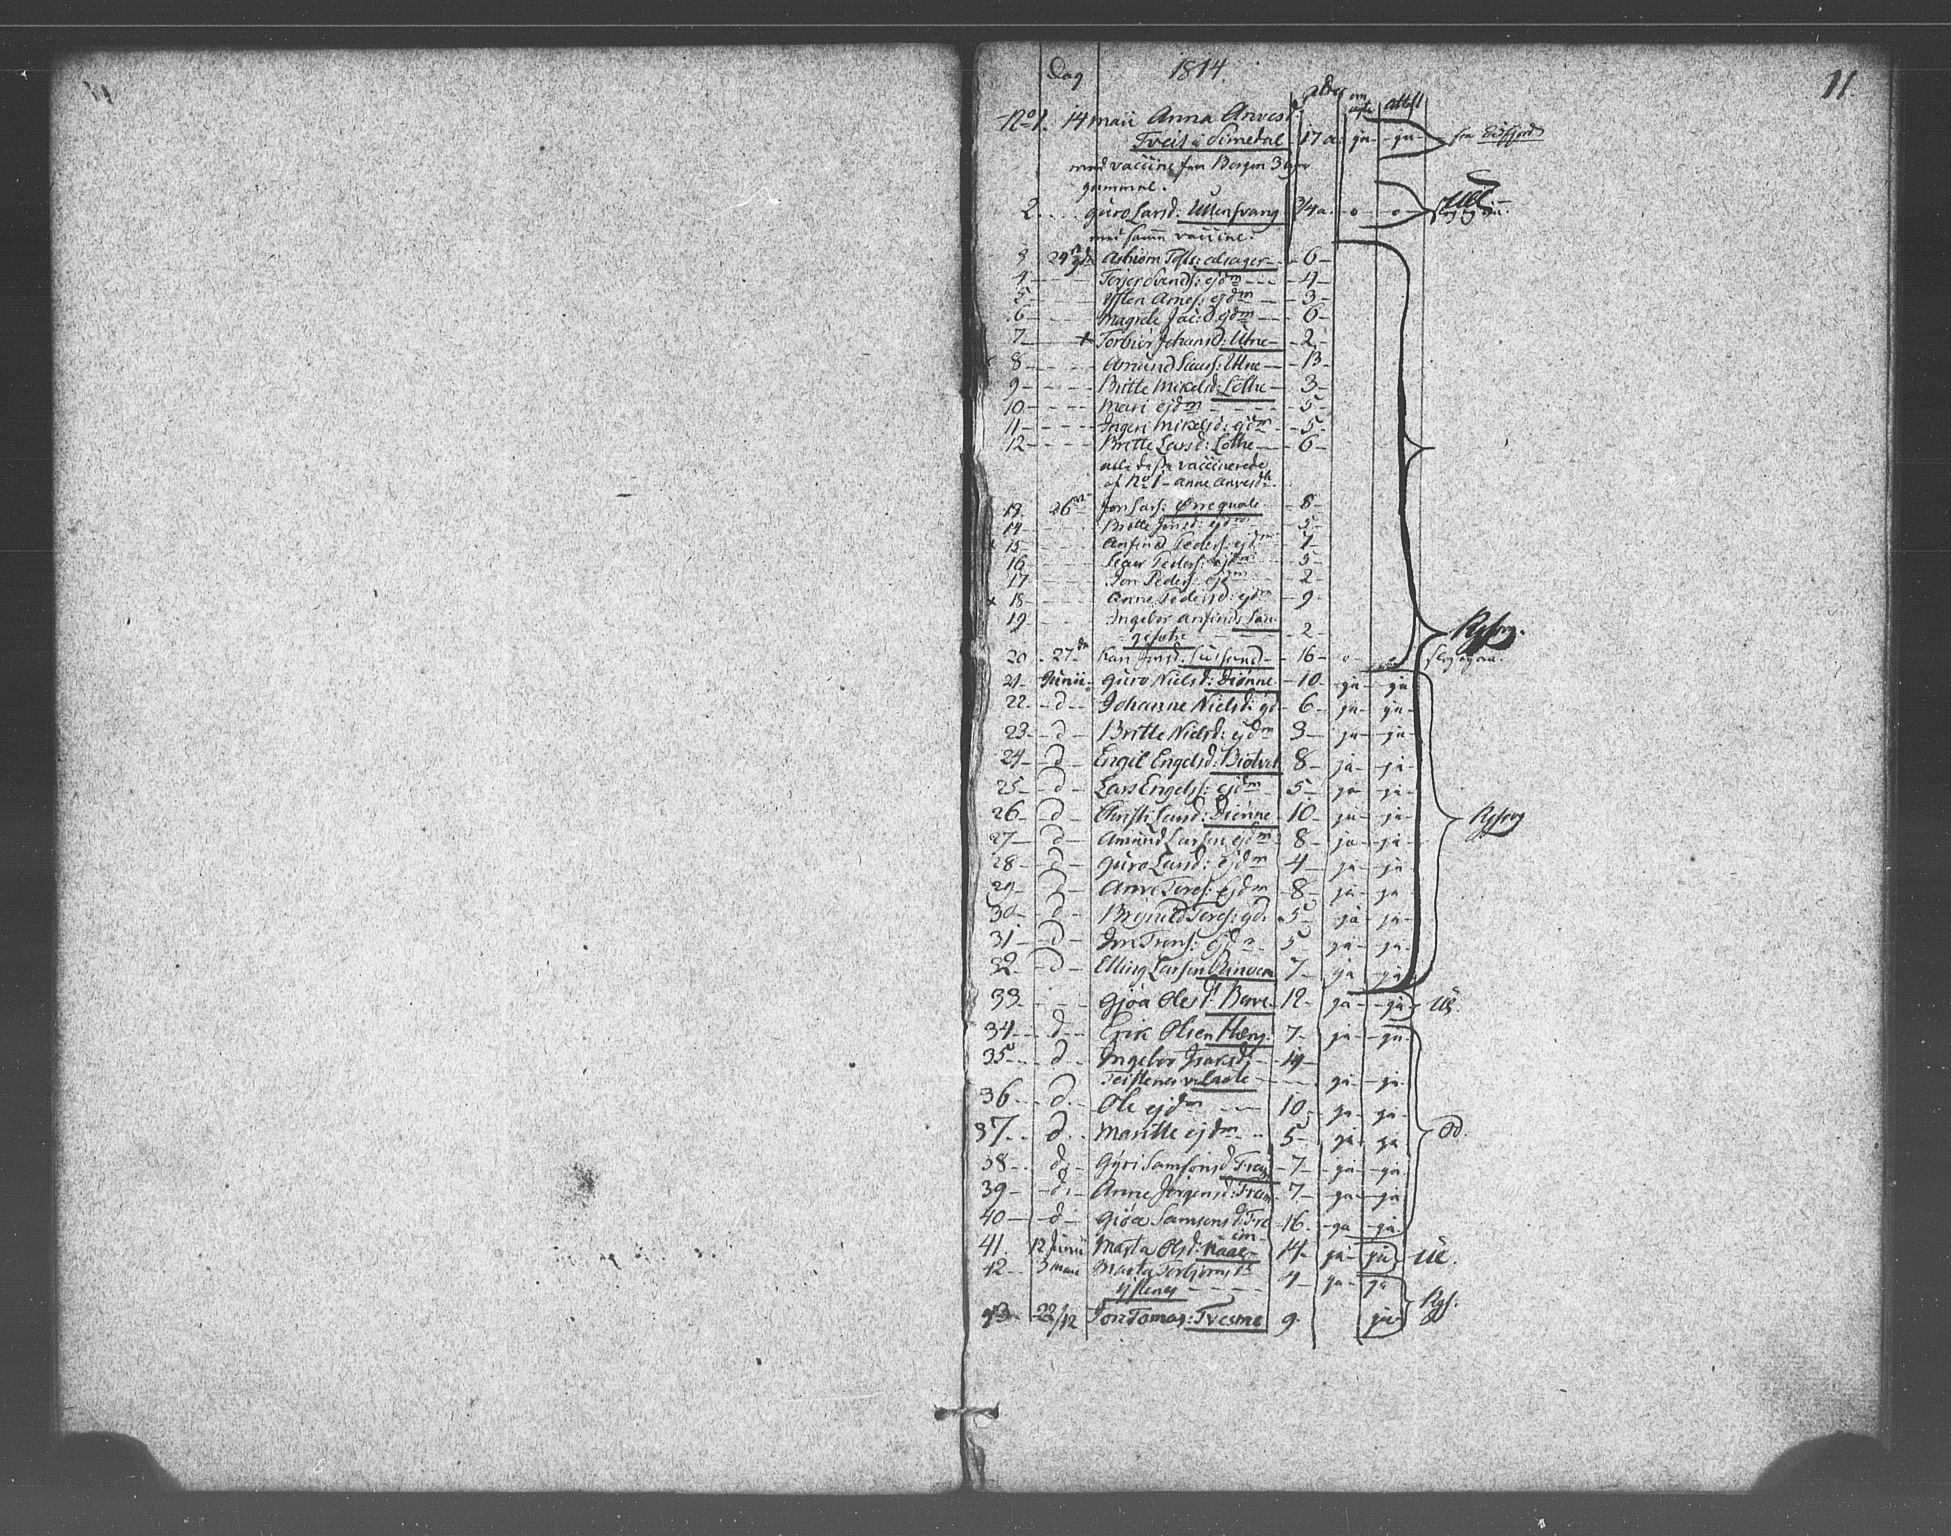 11
Dag 1814. alder om ægte attest
No 1. 14 maii Anna Arvesd:
Tveit i Simedal 17 a. ja ja fra Eidfjord
med vaccine fra Bergen 3 uger
gammel.
2 Guro Larsd: Ullensvang 3/4 a. o o
med samme vaccine.
3 24 Asbiørn Tofts: Alsager 6
4 Torger Svends: ejdm 4
5 Østen Arnes: ejdm 3
6 Magrele Jac: d. ejdm 6
7 Torbior Johansd: Utne 2
8 Amund Lars: Utne 13
9 Britte Mikelsd: Lothe 3
10 Mari ejdm 5
11 Ingeri Mikelsd: ejdm 5
12 Britte Larsd: Lothe 6
alle disse vaccinerede
af No 1 Anne Arvesdtr
13 26 Jon Lars: Ørrequale 8
14 Britte Jonsd: ejdm 5
15 Anfind Peders: ejdm 7
16 Peders: ejdm 5
17 Jon Peders: ejdm 2
18 Anne Pedersd: ejdm 9
19 Ingebor Anfinds:
2
20 27 Kari Jonsd: 16 o
21 Junii Guro Nielsd: Diønne 10 ja ja
22 d Johanne Nielsd: ejd 6 ja ja
23 d Britte Nielsd: ejdm 3 ja ja
24 d Engel Engelsd: Biotvet 8 ja ja
25 d Lars Engels: ejdm 5 ja ja
26 d Christi Larsd: Diønne 10 ja ja
27 d Amund Larsen ejdm 8 ja ja
28 d Guro Larsd: ejdm 4 ja ja
29 d Arve Tores: ejdm 8 ja ja
30 d Brynild Tores: ejd. 5 ja ja
31 d Jon Trons: ejdm 5 ja ja
32 d Elling Larsen 7 ja ja
33 Gjøa Olesd: Børve 12 ja ja Ull.
34 d Erik Olsen 7 ja ja
35 d Ingebor Isaksd: 14
Teistenes v. Laate ja ja
36 d Ole ejdm 10 ja ja
37 d Maritte ejdm 5 ja ja Od.
38 d Gyri Samsonsd 7 ja ja
39 d Anne Jørgensd: 7 ja ja
40 d Gjøa Samsonsd: 16 ja ja
41. 12 Junii Marta Olsd: Naae 14 ja ja Ull.
42 3 Marta Torbiørnsd:
Ystenes 4 ja ja
43 22/12 Jon Tomas: Tvesme 9 ja